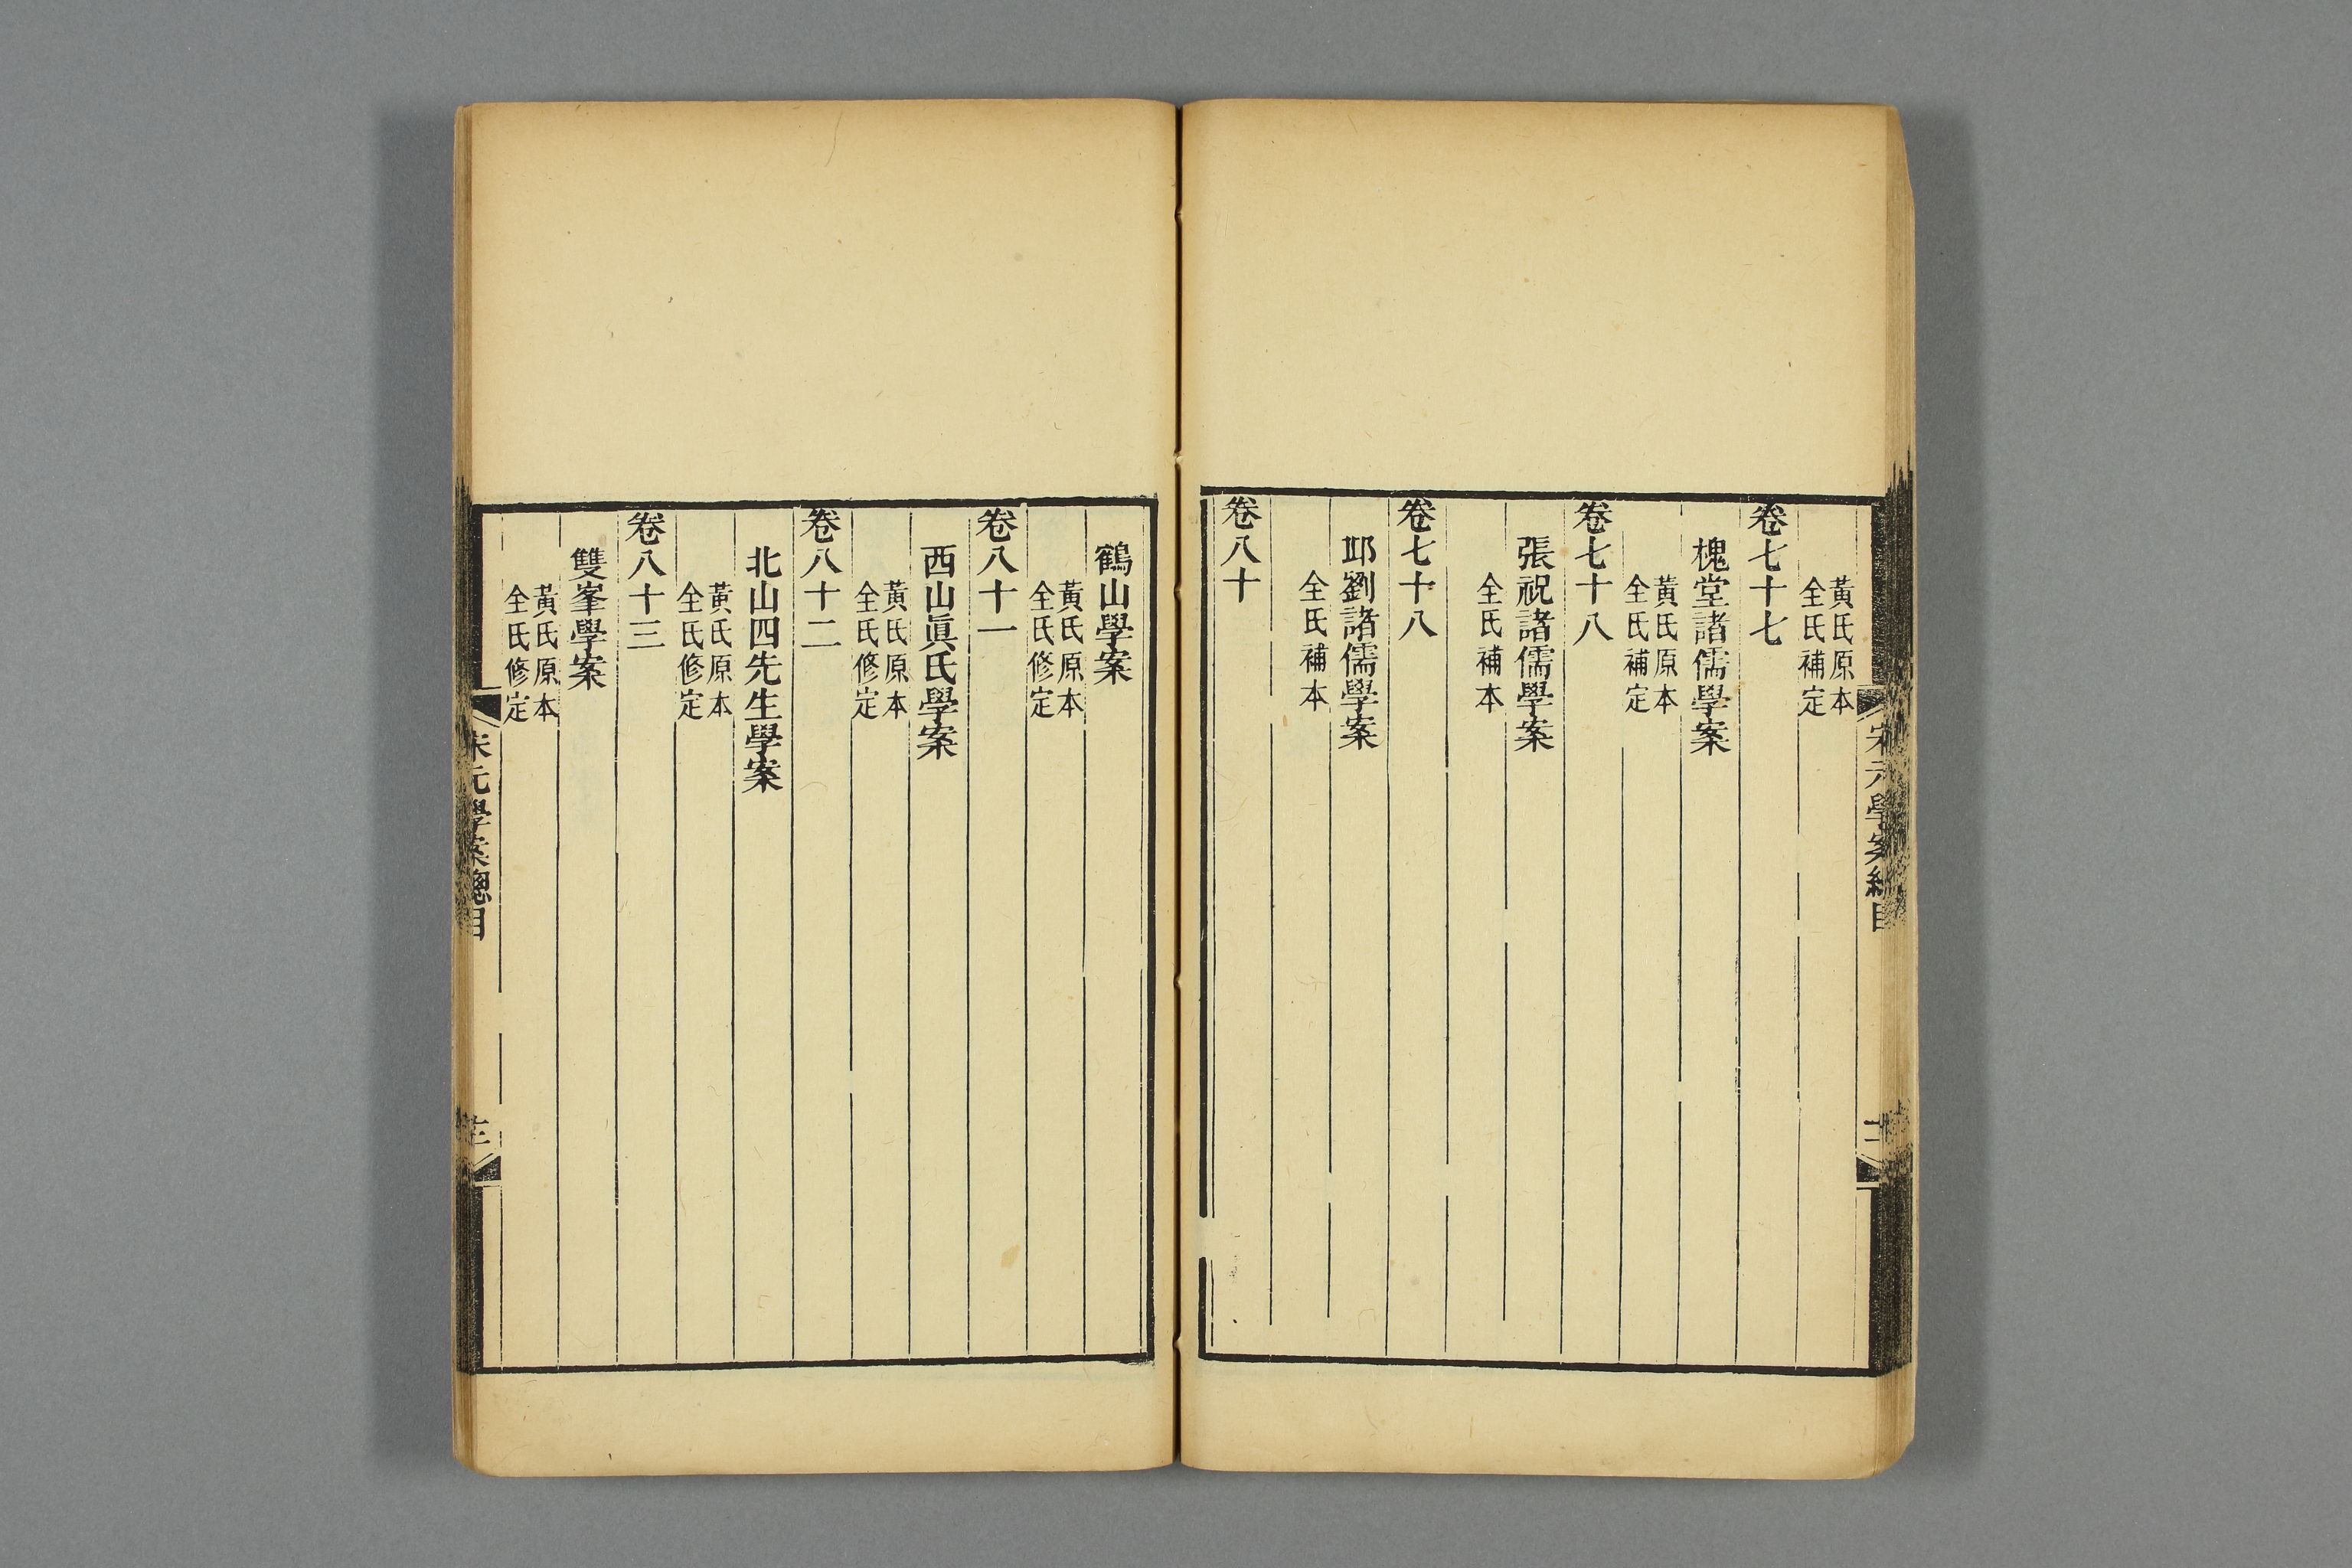 黃氏原本
全氏補定
卷七十七
槐堂諸儒學案
黃氏原本
全氏補定
卷七十八
張祝諸儒學案
全氏補本
卷七十八
邱劉諸儒學案
全氏補本
卷八十
宋元學案總目
鶴山學案
黃氏原本
全氏修定
卷八十一
西山眞氏學案
黃氏原本
全氏修定
卷八十二
北山四先生學案
黃氏原本
全氏修定
卷八十三
雙峯學案
黃氏原本
全氏修定
宋元學案總目